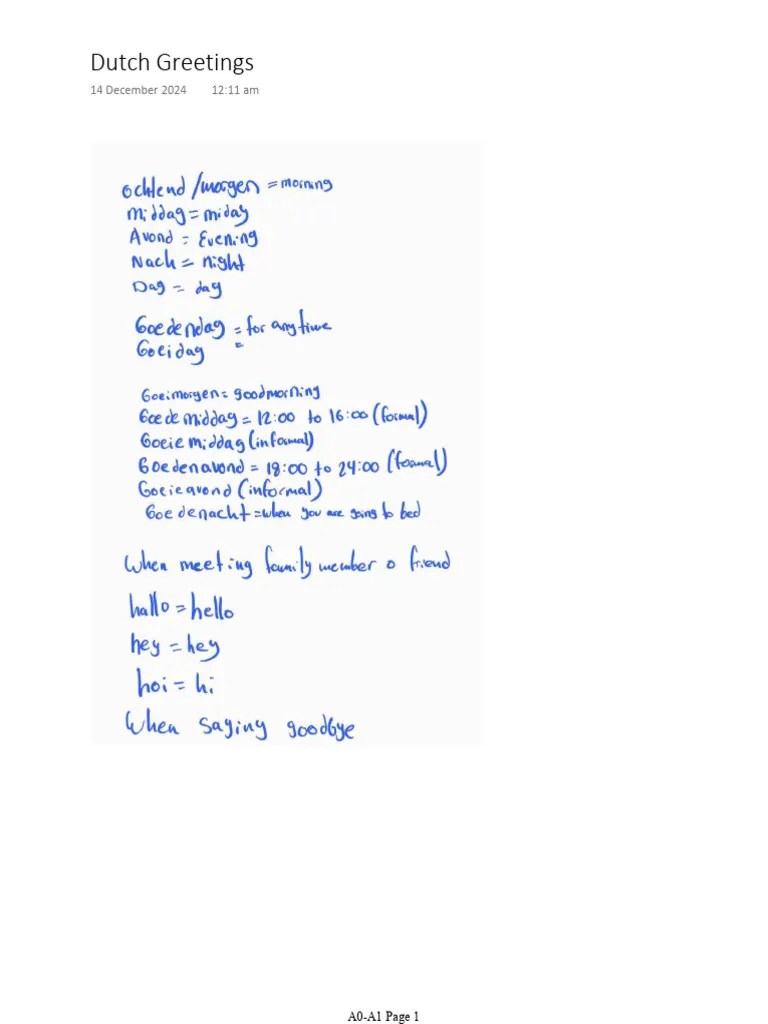 Dutch Greetings
14 December 2024 12:11 am
ochtend /morgen = morning
Middag = miday
Avond = Evening
Nach = night
Dag = day
Goedendag = for any time
Goeidag =
Goeimorgen = goodmorning
Goede middag = 12:00 to 16:00 (formal)
Goeie middag (informal)
Goedenavond = 18:00 to 24:00 (formal)
Goeieavond (informal)
Goedenacht = when you are going to bed
When meeting family member o friend
hallo = hello
hey = hey
hoi = hi
When saying goodbye
A0-A1 Page 1